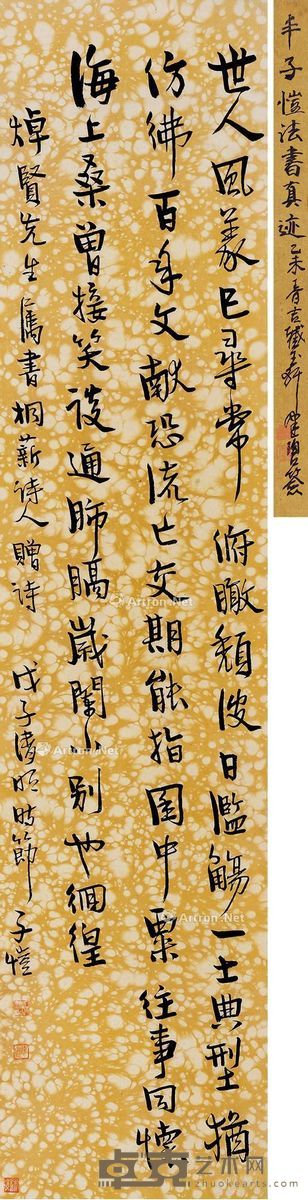 丰子愷法書真迹 乙未
世人風義已尋常俯瞰頹波日濫觴一士典型猶
仿彿百年文獻恐流亡交期能指囷中粟往事同憐
海上桑曾接笑談通肺膈歲闌別也徊徨
焯賢先生屬書桐薪詩人贈詩 戊子清明時節 子愷
Artron.Net
卓克艺术网
zhuokearts.com